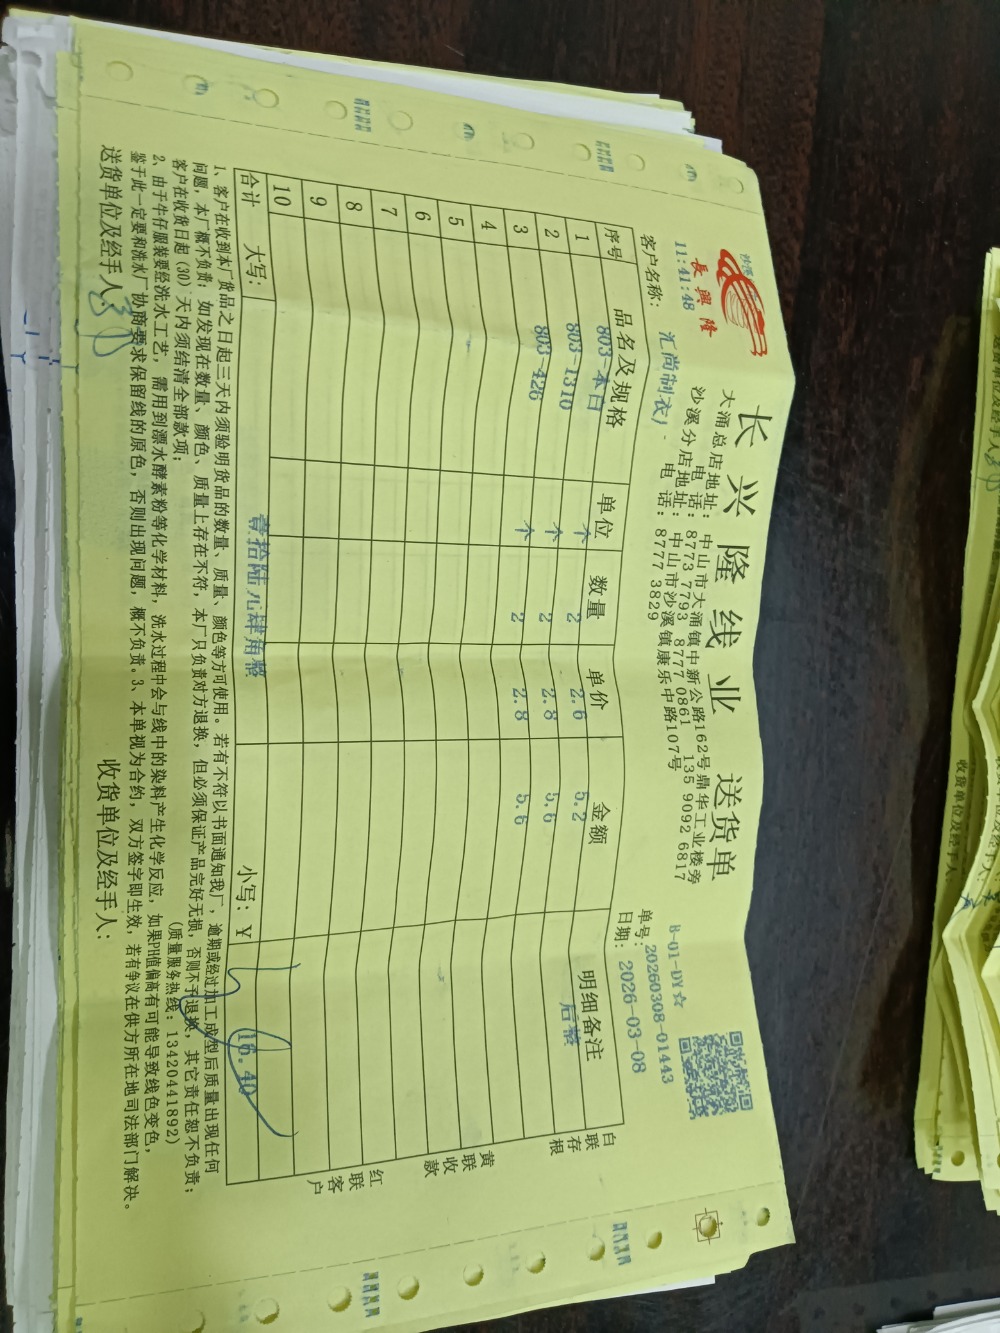 長興隆
长兴隆线业 送货单
大涌总店地址：中山市大涌镇中新公路162号鼎华工业楼旁
电话：8773 7793 8777 0861 135 9092 6817
沙溪分店地址：中山市沙溪镇康乐中路107号
电话：8777 3829
B-01-DY☆
单号：20260308-01443
日期：2026-03-08
11:41:48
客户名称：汇尚制衣厂
序号 品名及规格 单位 数量 单价 金额 明细备注
1 803-本白 个 2 2.6 5.2 后整
2 803-1310 个 2 2.8 5.6
3 803-426 个 2 2.8 5.6
4
5
6
7
8
9
10
合计 大写：壹拾陆元肆角整 小写：￥ 16.40
白联存根
黄联收款
红联客户
1、客户在收到本厂货品之日起三天内须验明货品的数量、质量、颜色等方可使用。若有不符以书面通知我厂，逾期或经过加工成型后质量出现任何
问题，本厂概不负责；如发现在数量、颜色、质量上存在不符，本厂只负责对方退换，但必须保证产品完好无损，否则不予退换，其它责任恕不负责；
客户在收货日起(30)天内须结清全部款项； (质量服务热线：13420441892)
2、由于牛仔服装要经洗水工艺，需用到漂水酵素粉等化学材料，洗水过程中会与线中的染料产生化学反应，如果PH值偏高有可能导致线色变色，
鉴于此一定要和洗水厂协商要求保留线的原色，否则出现问题，概不负责。3、本单视为合约，双方签字即生效，若有争议在供方所在地司法部门解决。
送货单位及经手人： 收货单位及经手人：
收货单位及经手人：